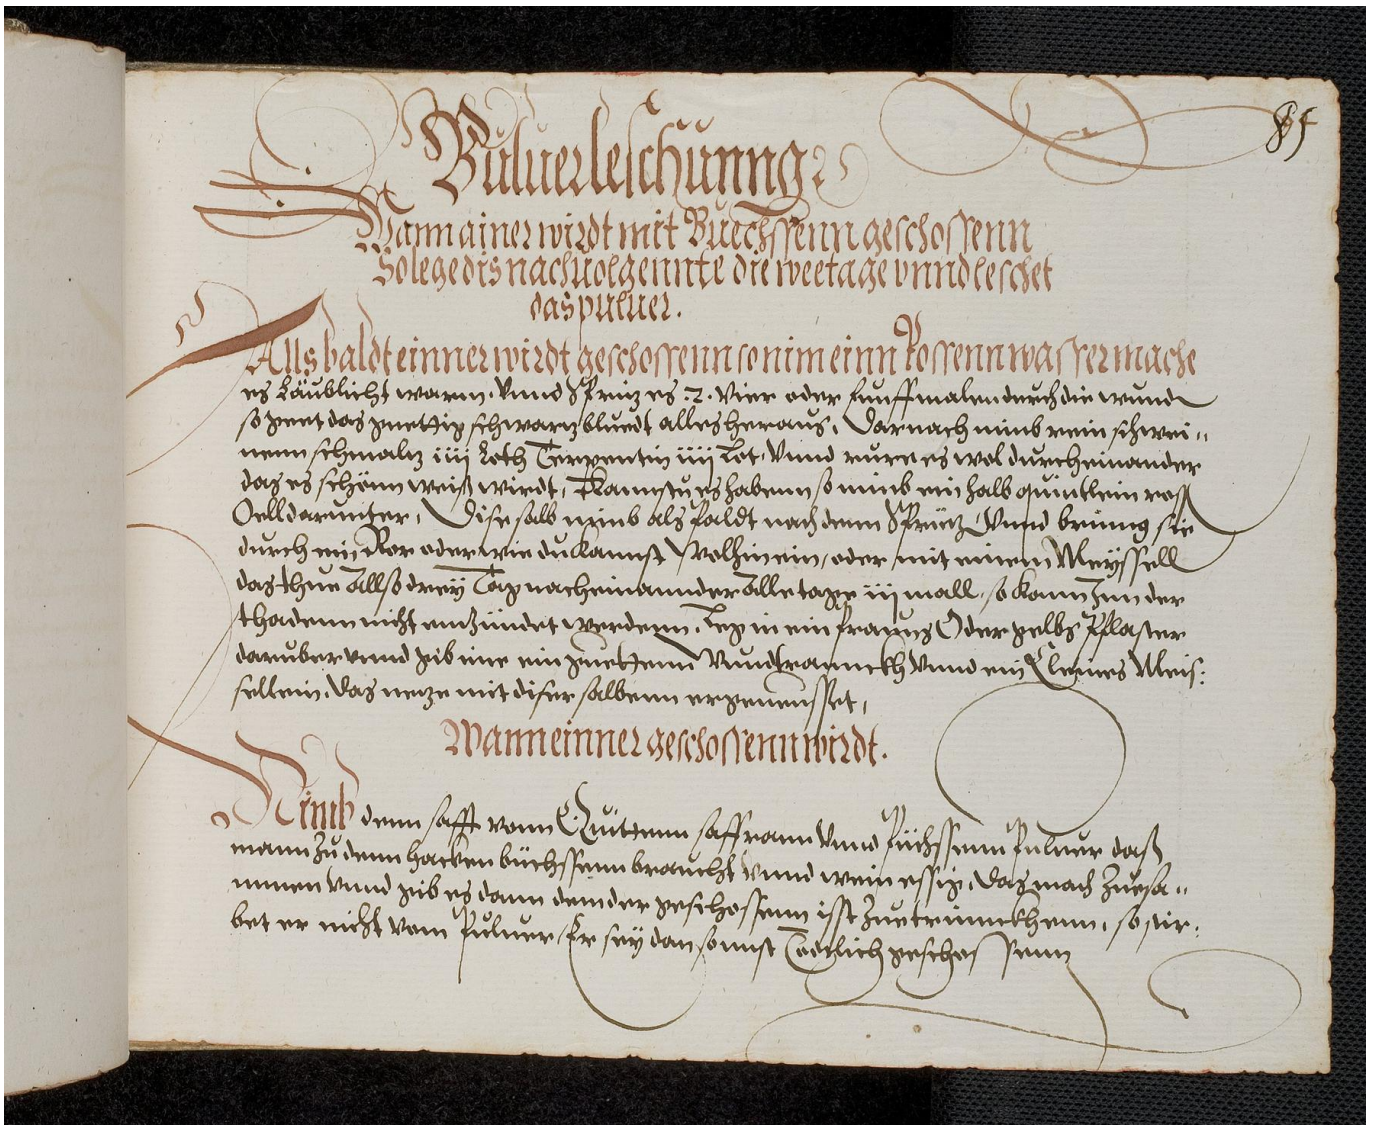 85
Puluerleschunng
Wann ainer wirdt mit Buechssenn geschossenn
So legedis nachuolgennte die weetage vnnd leschet
das puluer.
Alls baldt einner wirdt geschossenn so nim einn Rossenn wasser mache
es Läublicht warm. Vnnd Sprinz es .2. Vier oder funff malen durch die wund
so geet das gnettig schwarz bluedt alles heraus. Darnach nimb rein schwei„
nenn schmaltz iiij Loth Terpentin iiij Lot. Vnnd rure es wol durcheinander
das es schönn weiß wirdt, Kannstu es habenn so nimb ein halb quintlein ross
Oell darunter. Dise salb nimb als paldt nach denn Sprütz Vnnd brinng sie
durch ein Ror oder wie du kannst Wol hinein, oder mit einem Meyssell
das thue Allso drey Tag nacheinannder Alle tage iij mall. so kann Inn der
schadenn nicht enzündet werdenn. Leg in ein frauns Oder gelbs Pflaster
daruber vnnd gib ime ein guettenn Wundtrannckh Vnnd ein Cleines Meis:
sellein. Das neze mit diser salbenn
Wann einner geschossenn wirdt.
Nimb denn safft vonn Quittenn saffrann Vnnd Püchssenn Puluer daß
mann zu denn hacken büchssenn braucht Vnnd wein essig. Das mach Zuesa„
mmen Vnnd gib es dann dem der geschossenn isst Zuetrinnckhenn. so stir:
bet er nicht vom Puluer, Er sey dan sonnst Toetlich geschossenn